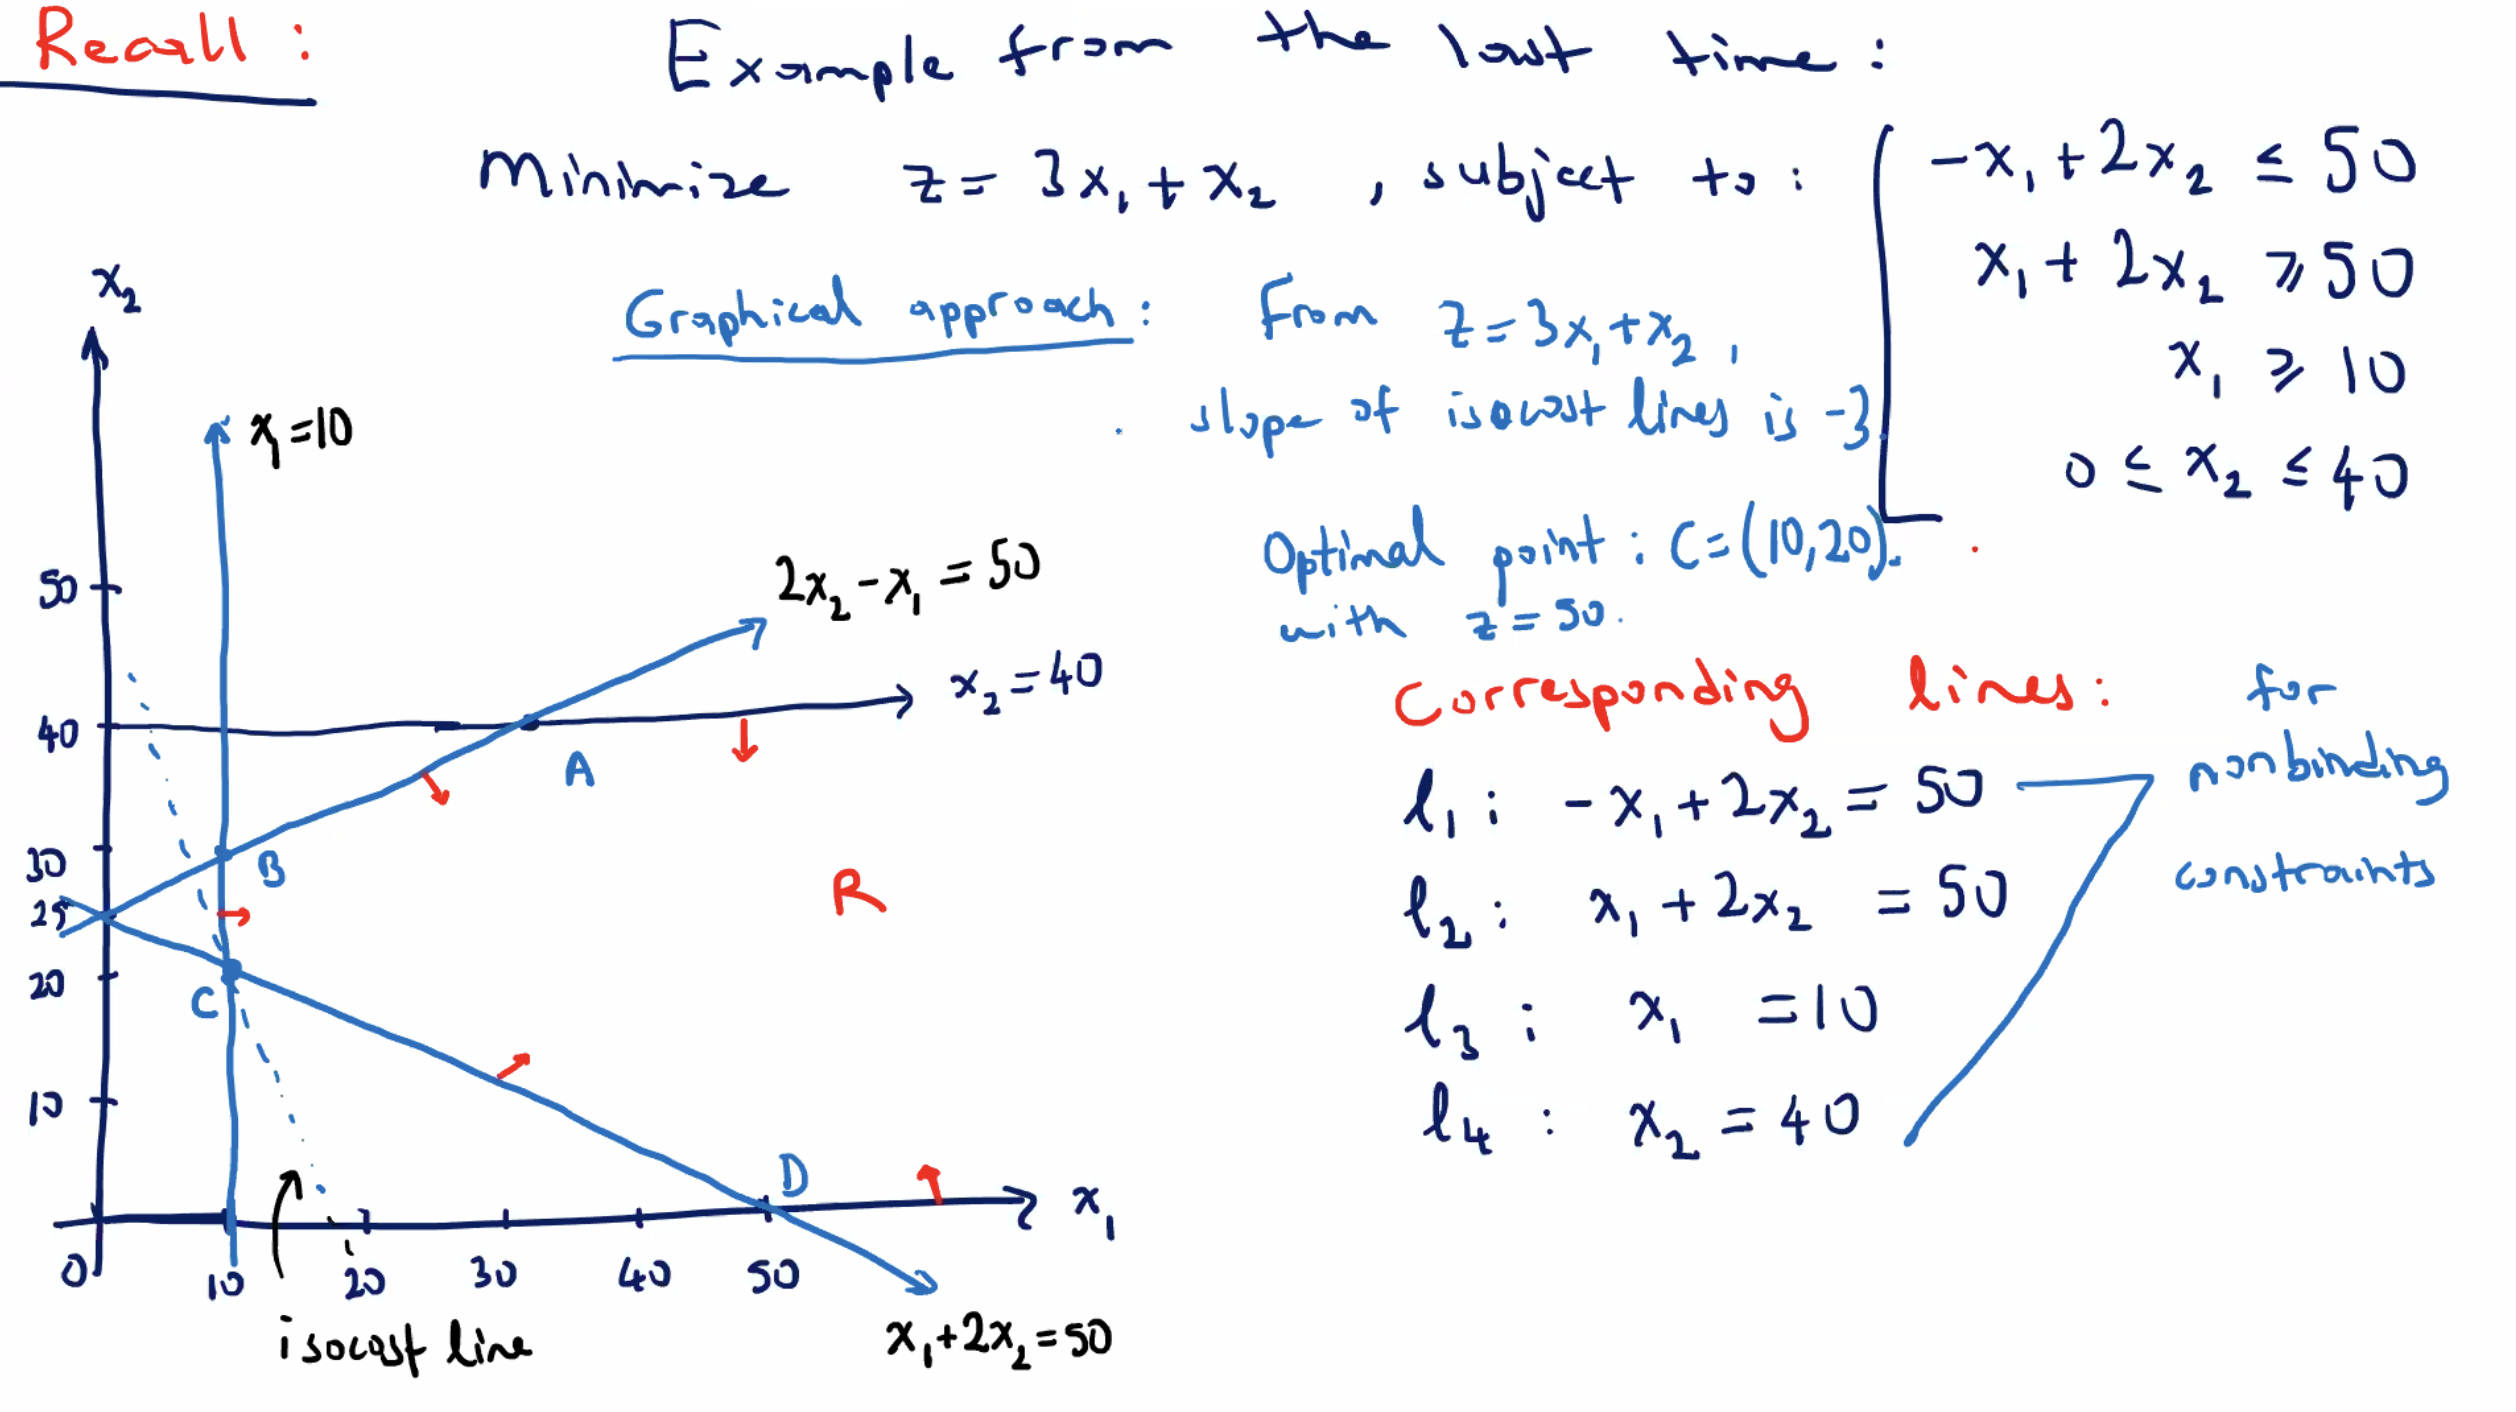 Recall :
Example from the last time :
Minimize z = 3x₁ + x₂ , subject to :
-x₁ + 2x₂ ≤ 50
x₁ + 2x₂ ≥ 50
x₁ ≥ 10
0 ≤ x₂ ≤ 40
Graphical approach : From z = 3x₁ + x₂ ,
slope of isocost lines is -3.
Optimal point : C = (10,20).
with z = 50.
x₂
x₁ = 10
2x₂ - x₁ = 50
x₂ = 40
50
40
30
25
20
10
0
A
B
C
D
R
10 20 30 40 50
x₁
isocost line
x₁ + 2x₂ = 50
Corresponding lines :
l₁ : -x₁ + 2x₂ = 50
l₂ : x₁ + 2x₂ = 50
l₃ : x₁ = 10
l₄ : x₂ = 40
for
nonbinding
constraints